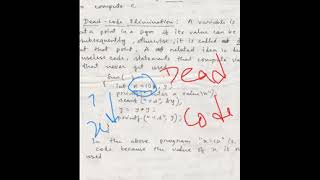 compute c
Dead-code Elimination: A variable is
at a point in a pgm if its value can be
subsequently, otherwise, it is called
at that point. A related idea is
useless code, statements that compute
that never get used. Dead
int x=10, y;
enter a value \n");
y = y * y; Code
printf ("%d", y);
In the above program "x=10" is
code because the value of x is
used